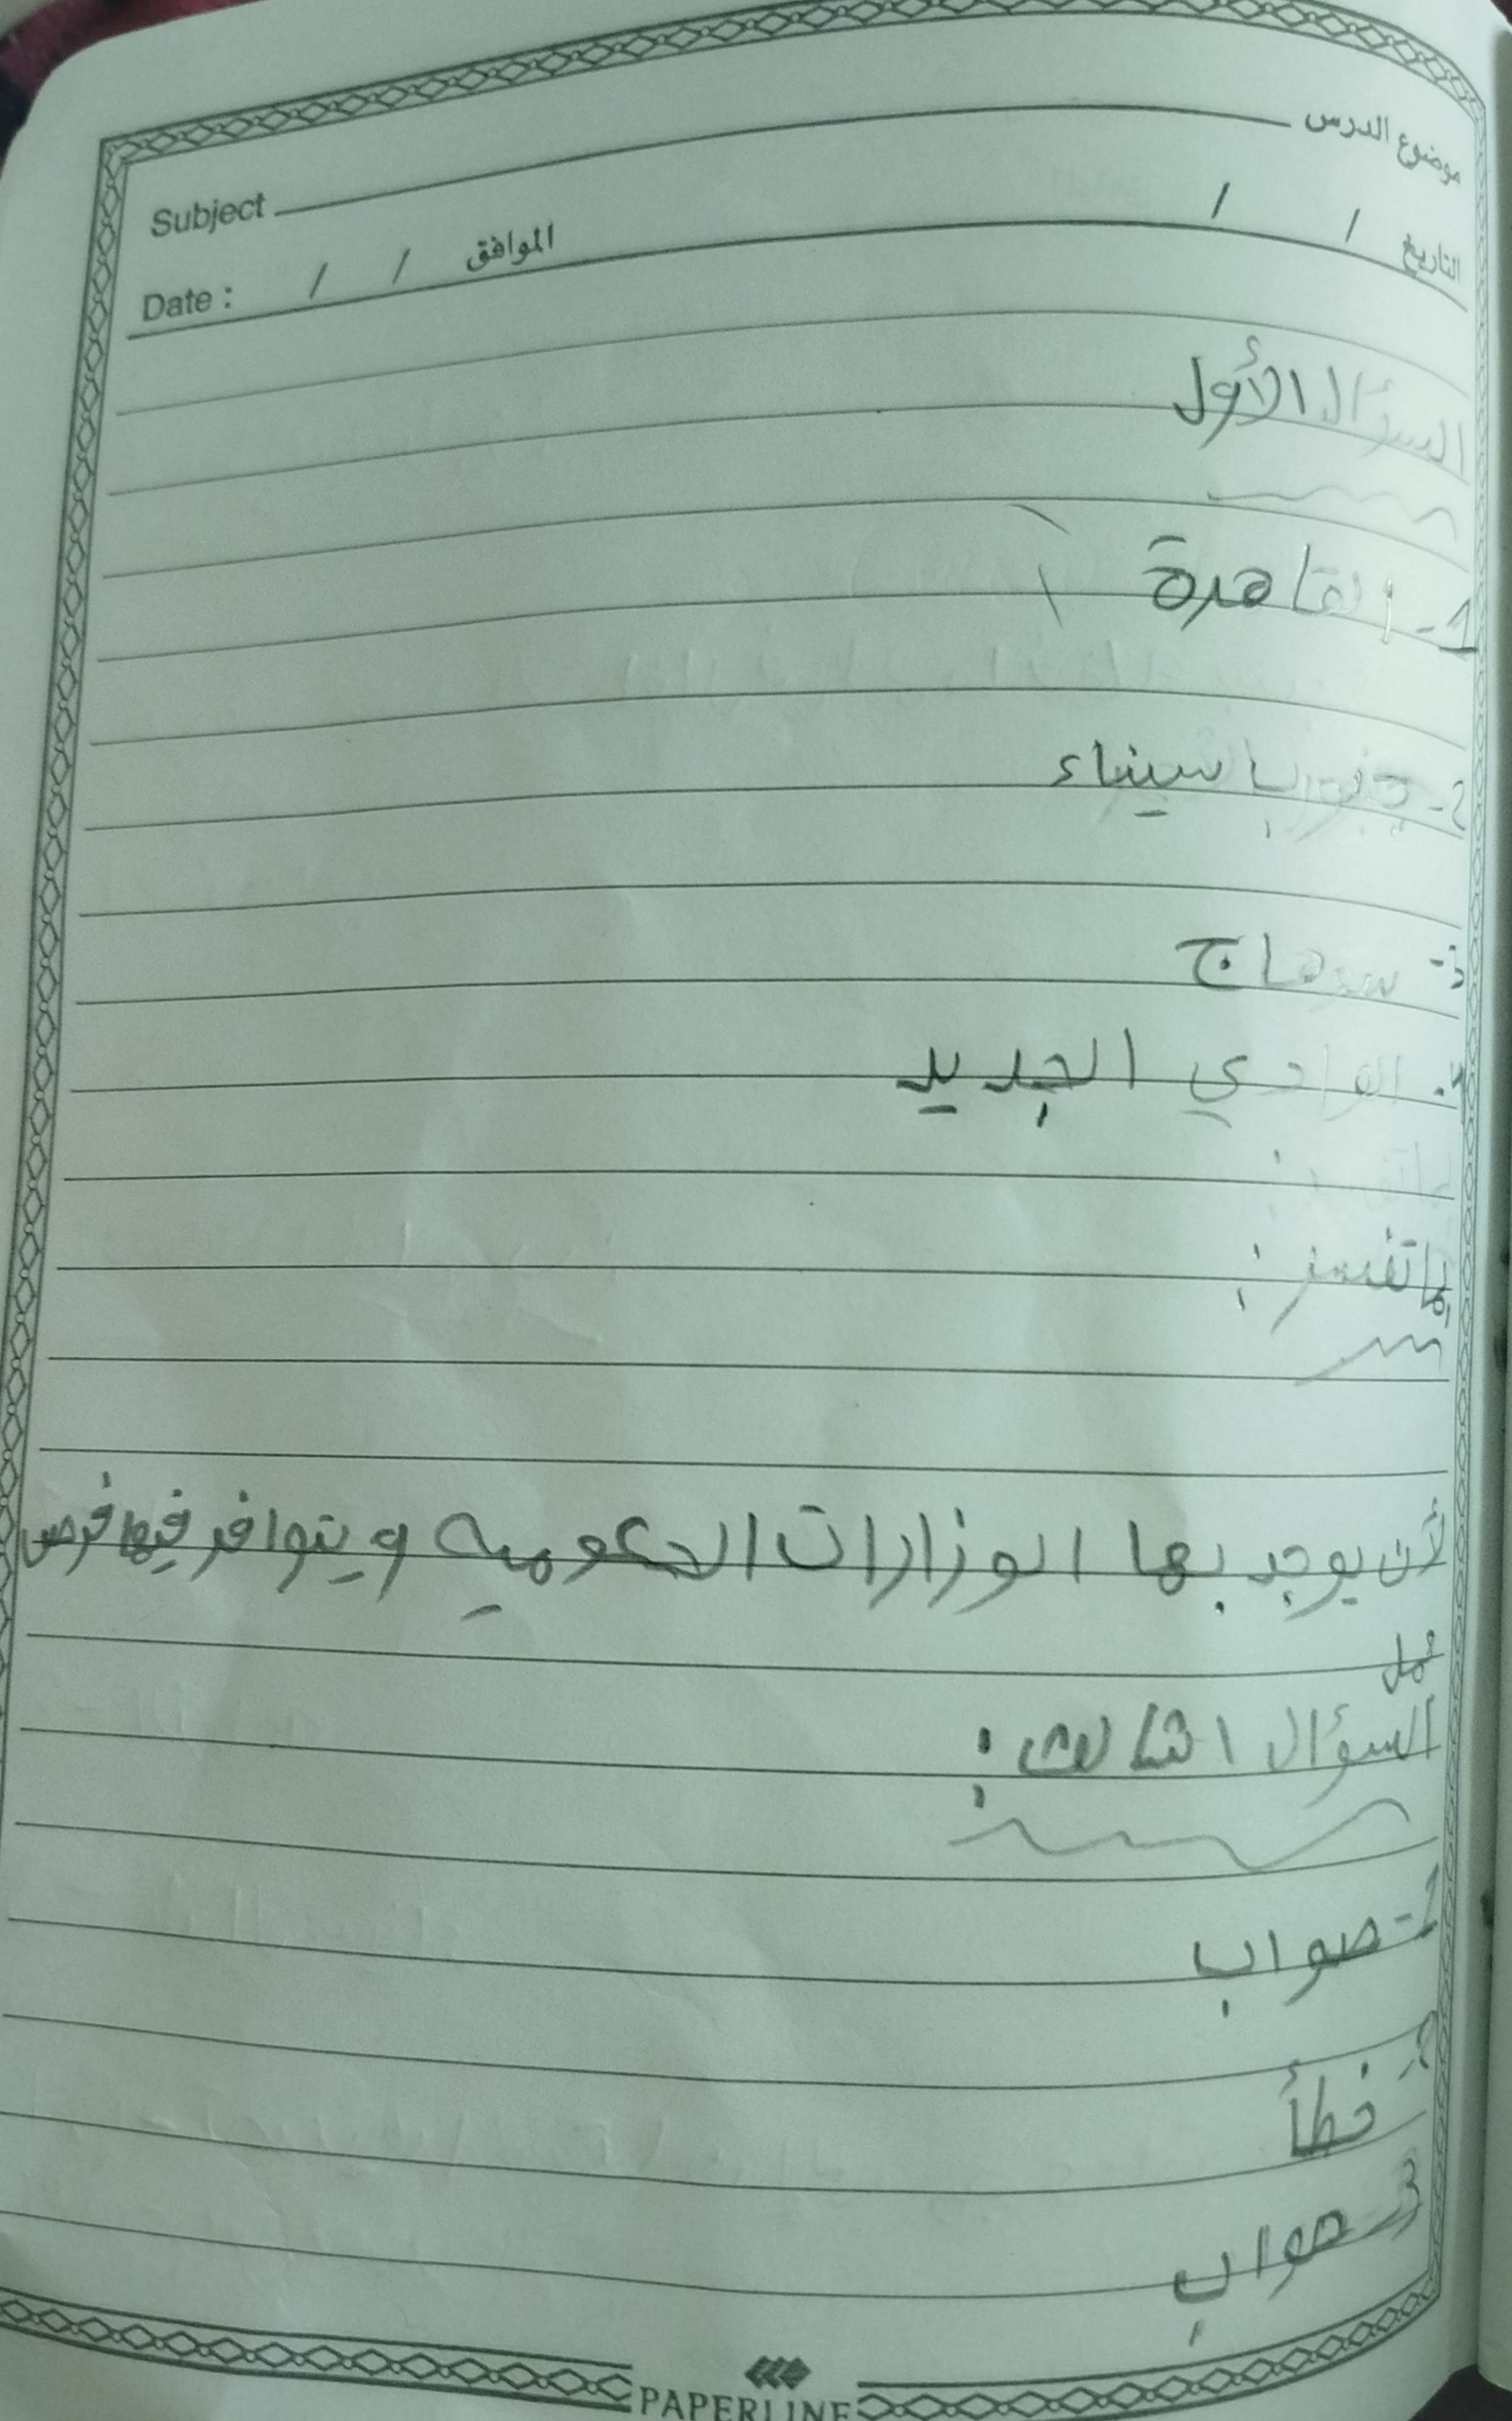 موضوع الدرس
Subject
التاريخ / /
الموافق / / Date :
السؤال الأول
1- القاهرة
2- جنوب سيناء
3- سوهاج
4- الوادي الجديد
بما تفسر :
لأن يوجد بها الوزارات الحكوميه و يتوافر فيها فرص
عمل
السؤال الثالث :
1- صواب
2- خطأ
3- صواب
PAPERLINE